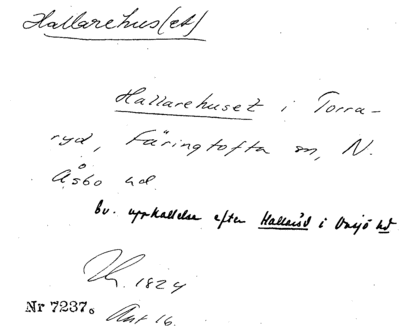 Hallarehus(et)
Hallarehuset i Torra-
ryd, Färingtofta sn, N.
Åsbo hd.
bv. uppkallelse efter Hallaröd i Onsjö hd
1824
Nr 7237.
Ant 16.